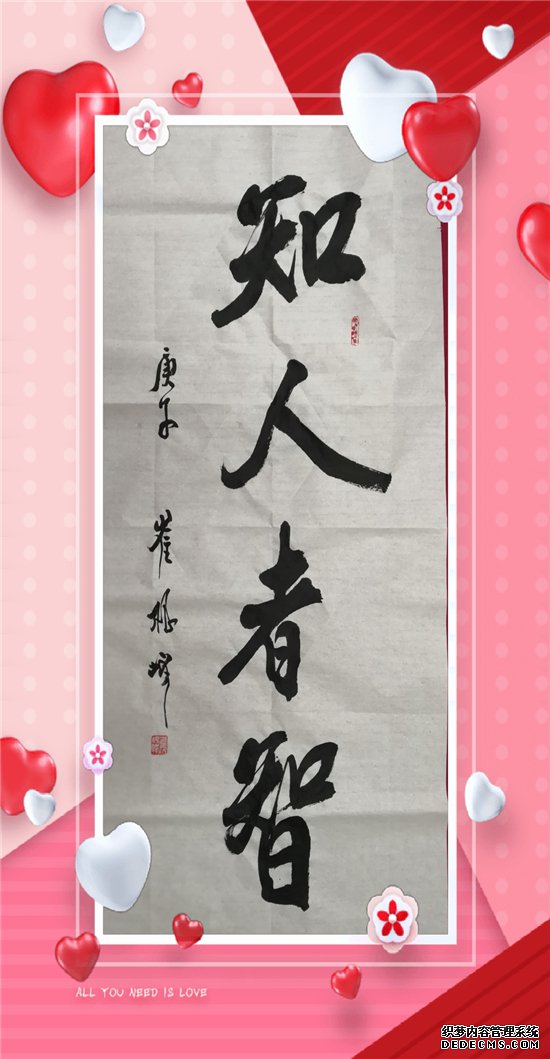 知人者智
庚子
崔
ALL YOU NEED IS LOVE
织梦内容管理系统
DEDECMS.COM